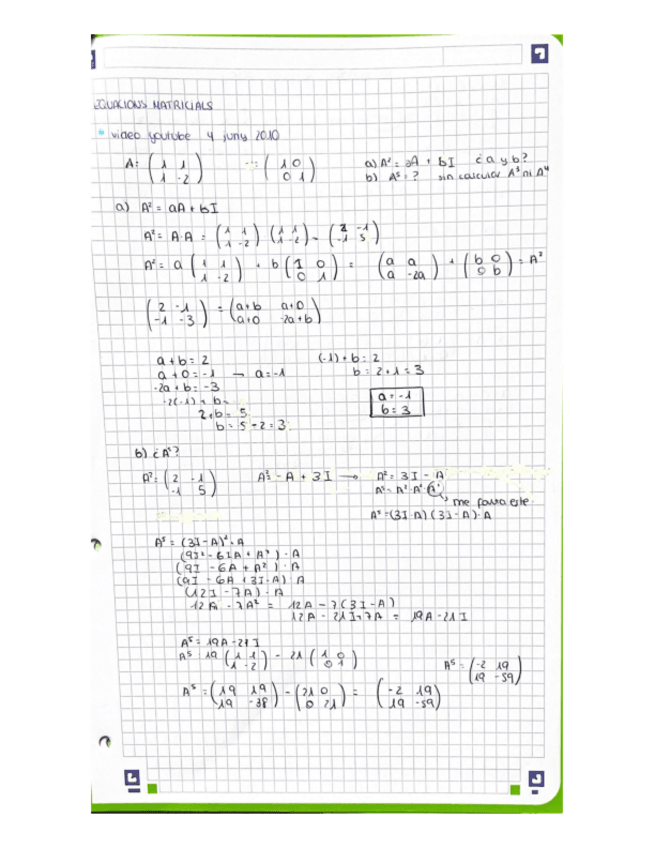 EQUACIONS MATRICIALS
* video youtube 4 juny 2010
A: (1 1 / 1 -2) (1 0 / 0 1) a) A² = aA + bI ¿a y b?
b) A⁵ = ? sin calcular A³ ni A⁴
a) A² = aA + bI
A² = A·A = (1 1 / 1 -2) (1 1 / 1 -2) = (2 -1 / -1 5)
A² = a (1 1 / 1 -2) + b (1 0 / 0 1) = (a a / a -2a) + (b 0 / 0 b) = A²
(2 -1 / -1 -3) = (a+b a+0 / a+0 -2a+b)
a + b = 2 (-1) + b = 2
a + 0 = -1 → a = -1 b = 2 + 1 = 3
-2a + b = -3
-2(-1) + b =
2 + b = 5 a = -1
b = 5 - 2 = 3 b = 3
b) ¿A⁵?
A² = (2 -1 / -1 5) A² = -A + 3I → A² = 3I - A
A⁵ = A²·A²·A¹
me falta este
A⁵ = (3I-A)(3I-A)·A
A⁵ = (3I-A)²·A
(9I² - 6IA + A²)·A
(9I - 6A + A²)·A
(9I - 6A + 3I-A)·A
(12I - 7A)·A
12A - 7A² = 12A - 7(3I-A)
12A - 21I+7A = 19A - 21I
A⁵ = 19A - 21I
A⁵ = 19 (1 1 / 1 -2) - 21 (1 0 / 0 1) A⁵ = (-2 19 / 19 -59)
A⁵ = (19 19 / 19 -38) - (21 0 / 0 21) = (-2 19 / 19 -59)